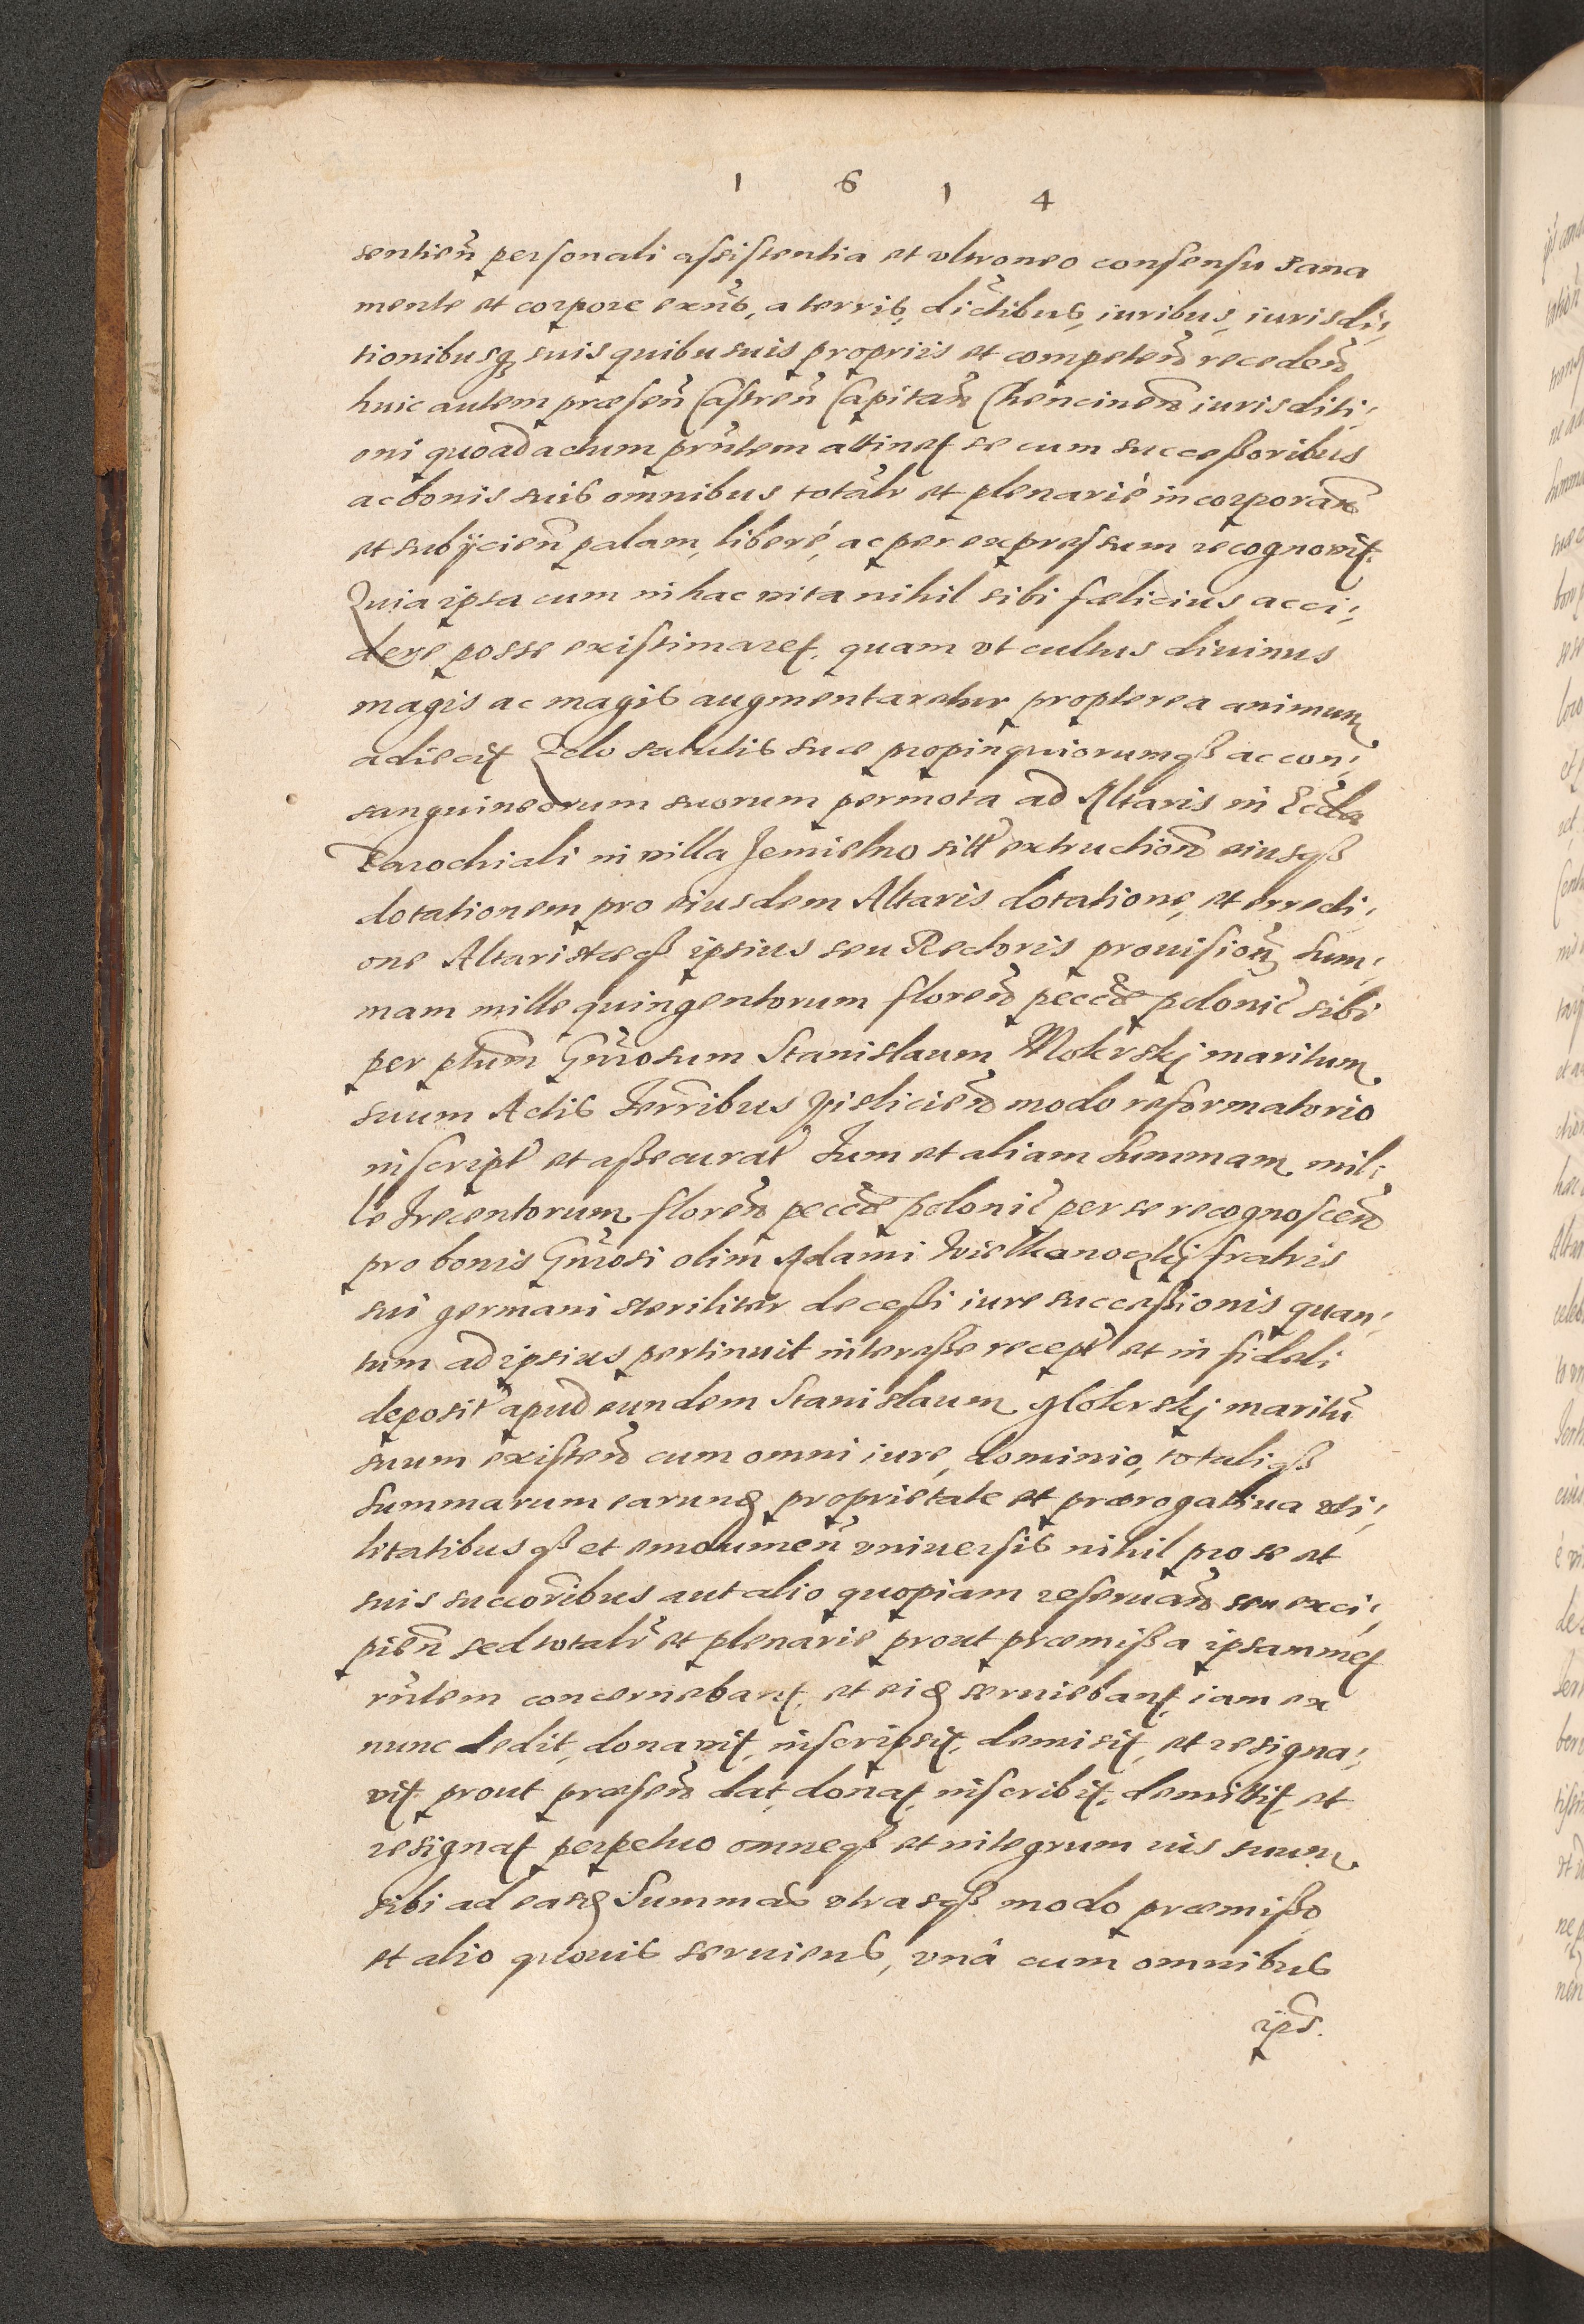 1 6 1 4
sentieñ personali assistentia et vltroneo consensu sana
mente et corpore exñs, a terris, districtibus, iuribus, iurisdi¡
tionibusq suis quibusuis propriis et competeñ recedeñ
huic autem præseñ Castreñ Capitañ Chencineñ iurisditi¡
oni quoad actum prñtem attinet se cum successoribus
ac bonis suis omnibus totalr et plenarié incorporañ
et subÿcieñ palam, liberé, ac per expressum recognovit.
Quia ipsa cum in hac vita nihil sibi fælicius acci¡
dere posse existimaret, quam vt cultus diuinus
magis ac magis augmentaretur propterea animum
adiecit Zelo salutis suæ propinquiorumqß ac con¡
sanguineorum suorum permota ad Altaris in Eccla
Parochiali in villa Jemielno sitt extructioñ eiusqß
dotationem pro eiusdem Altaris dotatione, et errecti¡
one Altaristæqß ipsius seu Rectoris prouisioñ, Sum¡
mam mille quingentorum floreñ peccæ polonic sibi
per ptum Gñrosum Stanislaum Mokrskj maritum
suum Actis Terribus Visliciеñ modo reformatorio
inscript et assecurat Tum et aliam Summam mil¡
le Trecentorum floreñ peccæ polonic per se recognosceñ
pro bonis Gñrosi olim Adami Wielkanoczkj fratris
sui germani steriliter decessi iure successionis quan¡
tum ad ipsius pertinuit interesse recept et in fideli
deposit apud eundem Stanislaum Mokrskj maritũ
suum existeñ cum omni iure, dominio, totaliqß
Summarum earund proprietate et prærogatiua vti¡
litatibusqß et emolumeñ vniuersis nihil pro se et
suis succoribus aut alio quopiam reseruañ seu exci¡
pieñ sed totalr et plenarie prout præmissa ipsammet
rñtem concernebant, et eid seruiebant, iam ex
nunc dedit, donavit, inscripsit, demisit, et resigna¡
vit prout præseñ dat, donat, inscribit, demittit, et
resignat perpetuo omneqß et integrum ius suum
sibi ad easd Summas vtrasqß modo præmisso
et alio quouis seruiens, vnâ cum omnibus
ips.